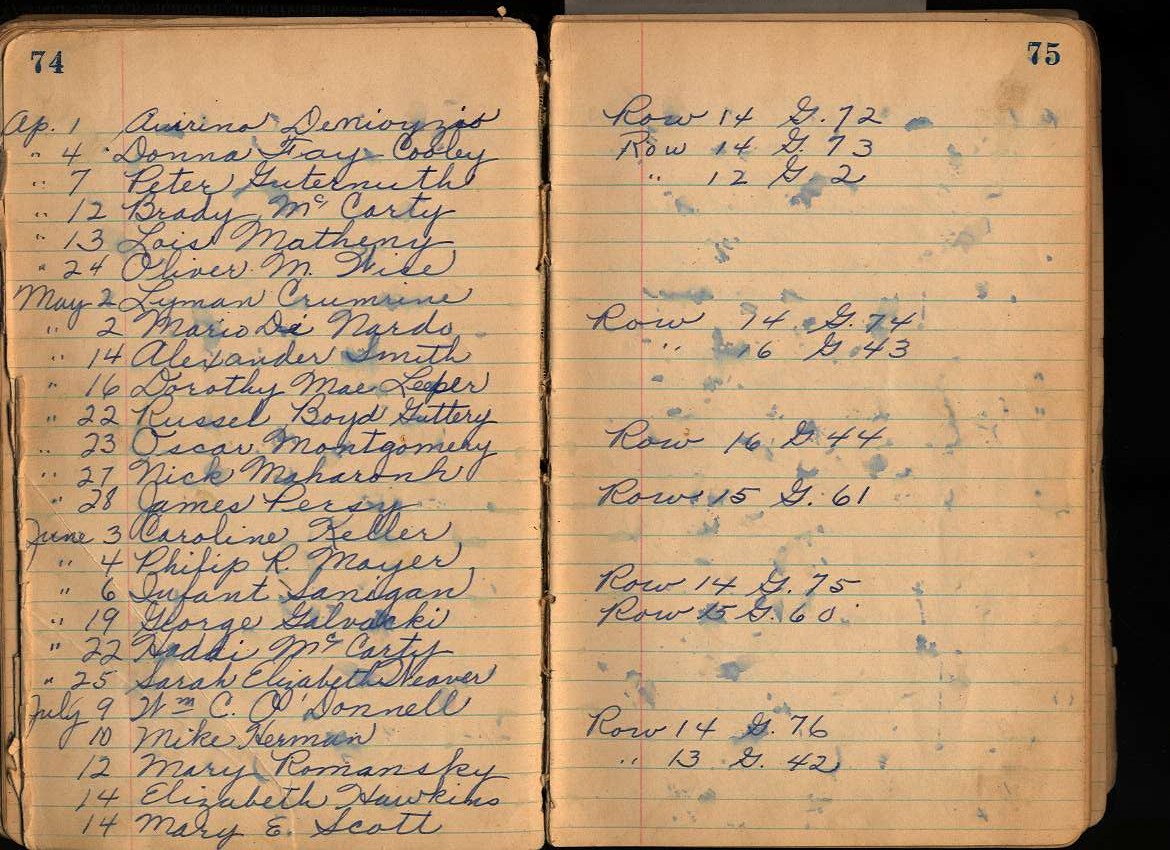 74
Ap. 1 Avirino Denioyzio
" 4 Donna Fay Cooley
" 7 Peter Guternuth
" 12 Brady Mc Carty
" 13 Lois Matheny
" 24 Oliver M. Wise
May 2 Lyman Crumrine
" 2 Mario Di Nardo
" 14 Alexander Smith
" 16 Dorothy Mae Leeper
" 22 Russel Boyd Guttery
" 23 Oscar Montgomery
" 27 Nick Maharonh
" 28 James Persy
June 3 Caroline Keller
" 4 Philip R. Mayer
" 6 Infant Lanigan
" 19 George
" 22 Mc Carty
" 25 Sarah Elizabeth Weaver
July 9 Wm C. O'Donnell
10 Mike Herman
12 Mary Romansky
14 Elizabeth Hawkins
14 Mary E. Scott
75
Row 14 G. 72
Row 14 G. 73
" 12 G 2
Row 14 G. 74
" 16 G 43
Row 16 G. 44
Row 15 G. 61
Row 14 G. 75
Row 15 G. 60
Row 14 G. 76
" 13 G. 42